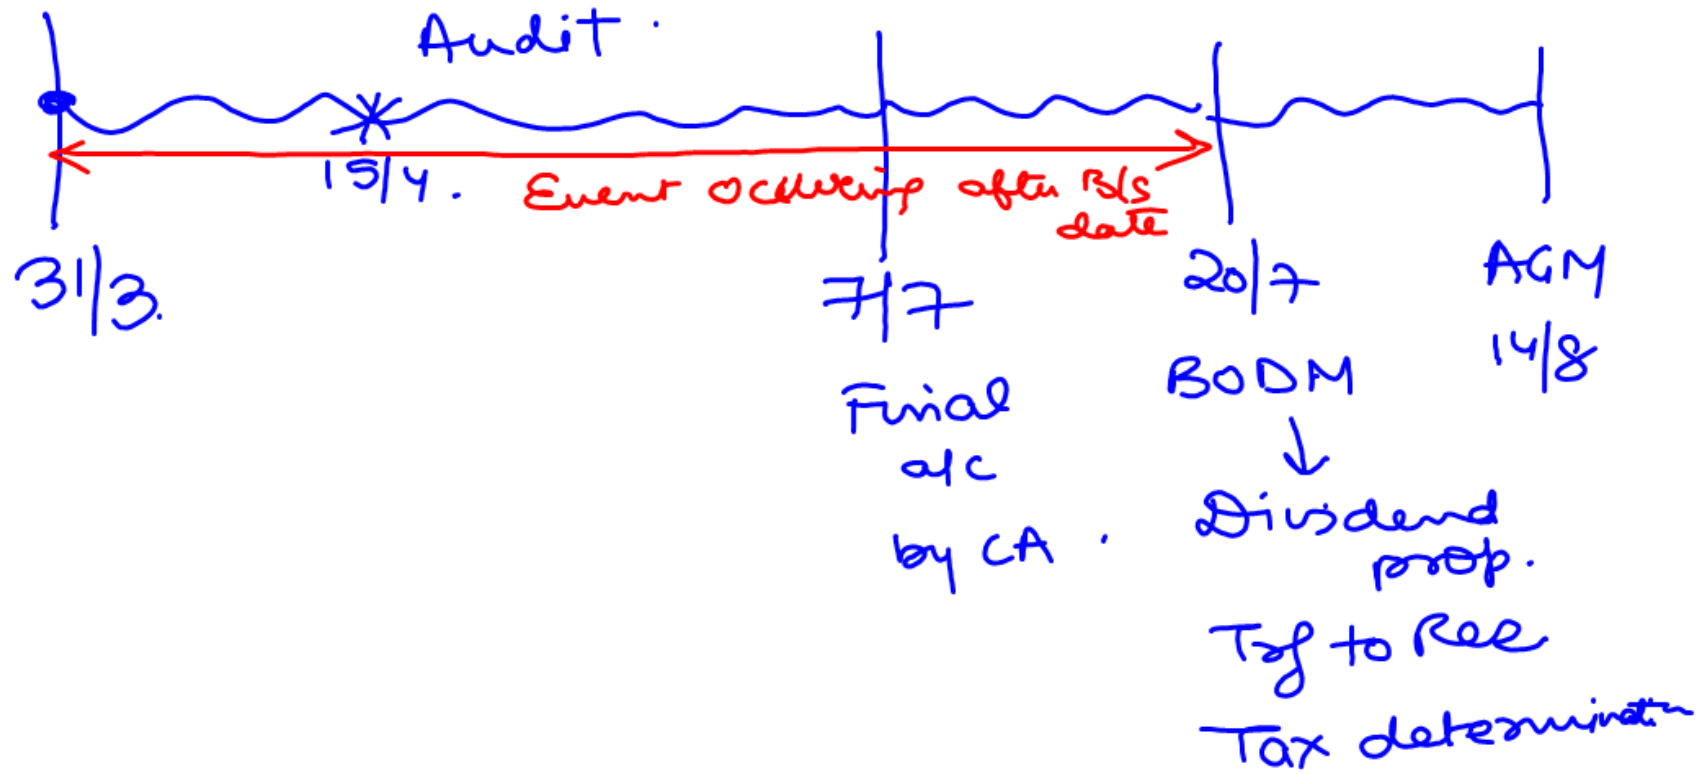 Audit.
15/4.
Event occuring after B/s
date
31/3.
7/7
20/7
AGM
14/8
Final
a/c
by CA.
BODM
↓
Dividend
prop.
Trf to Res
Tax determination